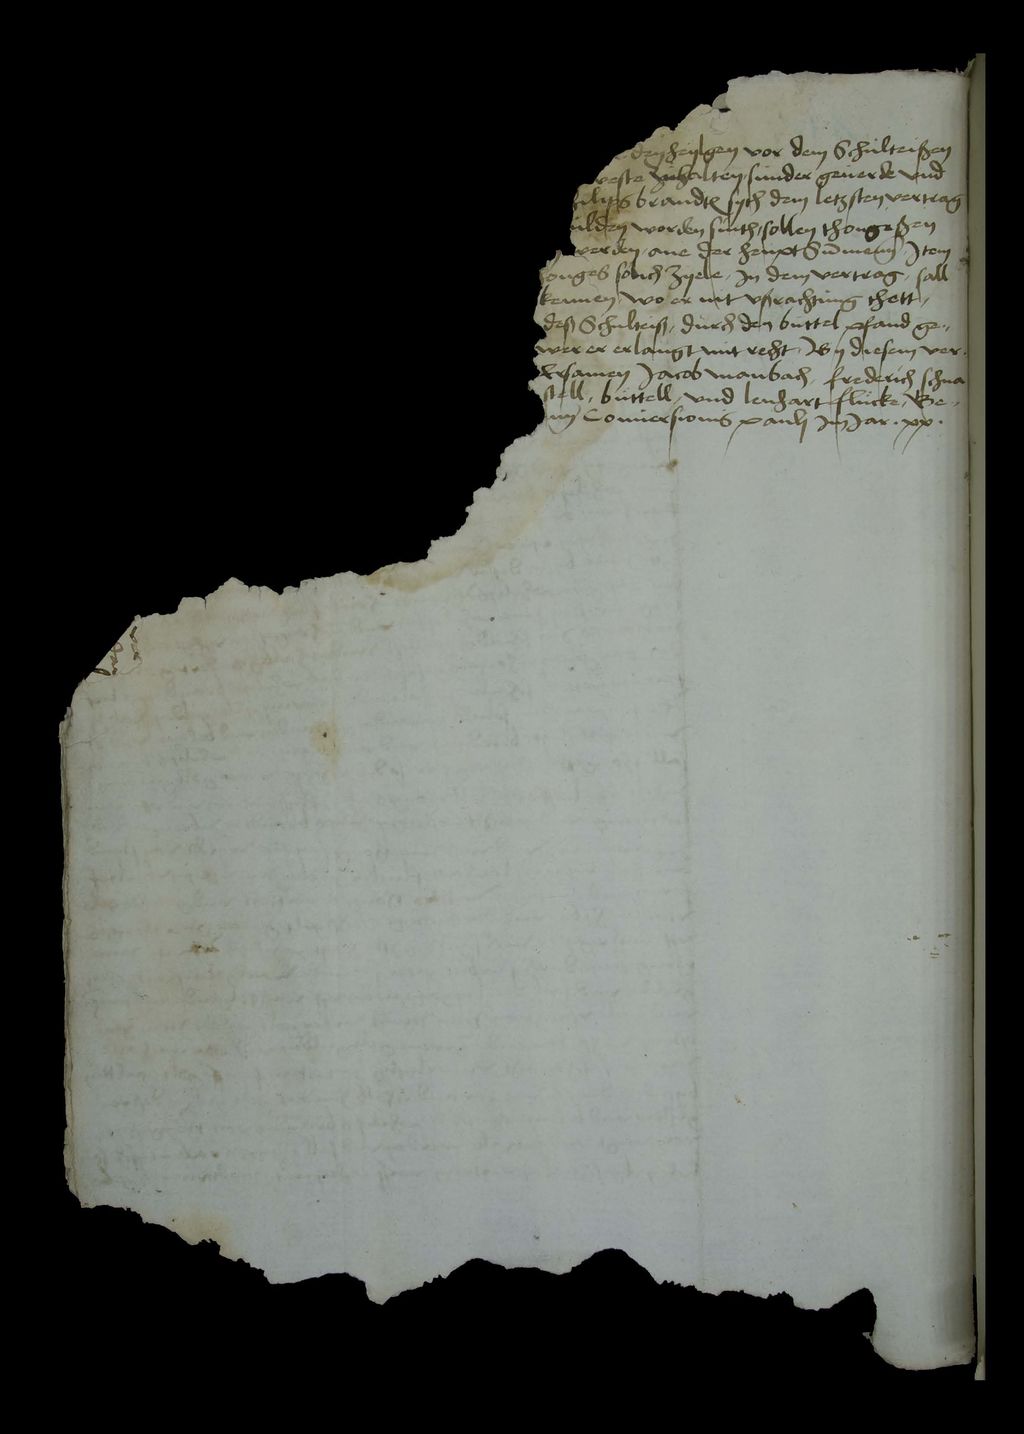 den heylgen vor dem Schulteißen
veste zuhalten sunder geuerde vnd
brandts sych dem letzsten vertrag
ulden worden sinth sollen thongeßen
werden ane der heupt Sumem Item
onges solich Zyele In dem vertrag sall
kennen wo er nit vßrachtung thett
deß Schulteiß durch den büttel pfand ge
wer er erlangt mit recht By diesem ver
Ersamen Jacob manbach frederich schna
stell büttell vnd lenhart flücke Ge
Conuersionis pauli Im Jar xx